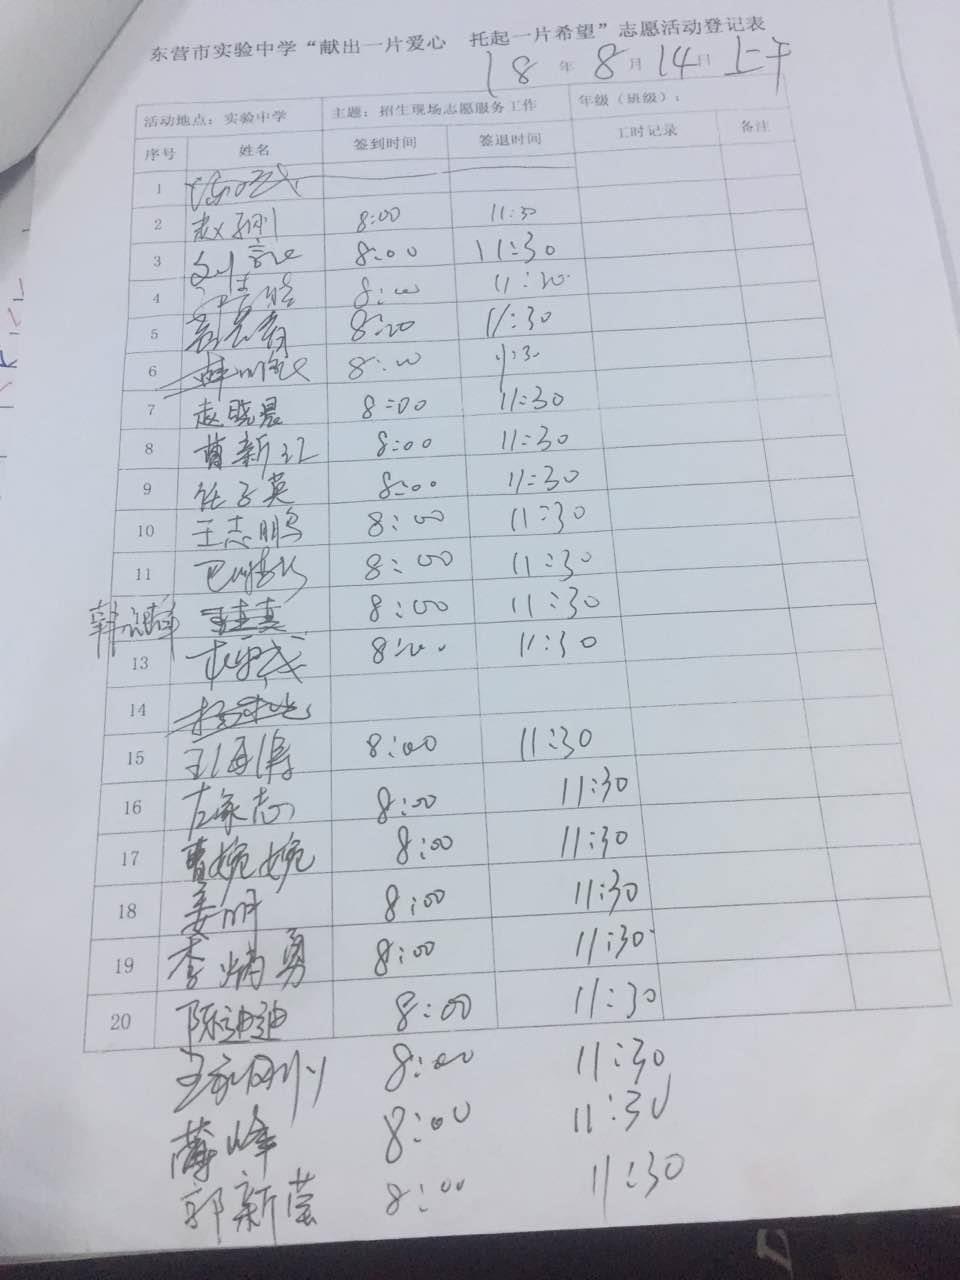 东营市实验中学“献出一片爱心 托起一片希望”志愿活动登记表
18年8月14日上午
活动地点：实验中学 主题：招生现场志愿服务工作 年级（班级）：
序号 姓名 签到时间 签退时间 工时记录 备注
1
2 赵 8:00 11:30
3 刘 8:00 11:30
4 8:00
5 8:00 11:30
6 8:00
7 赵晓晨 8:00 11:30
8 曹新江 8:00 11:30
9 任子英 8:00 11:30
10 王志鹏 8:00 11:30
11 8:00 11:30
8:00 11:30
13 8:00 11:30
14
15 王海涛 8:00 11:30
16 左家志 8:00 11:30
17 曹婉婉 8:00 11:30
18 姜明 8:00 11:30
19 李炳勇 8:00 11:30
20 陈迪迪 8:00 11:30
8:00 11:30
薄峰 8:00 11:30
郭新莹 8:00 11:30